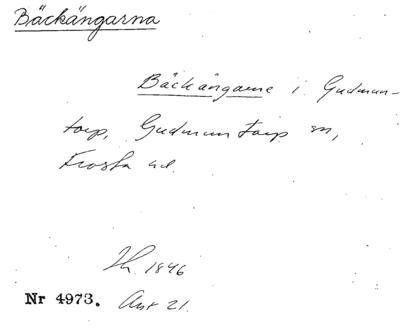 Bäckängarna
Bäckängarne i Gudmun-
torp, Gudmuntorp sn,
Frosta hd.
Lh. 1846
Nr 4973. Akt 21.